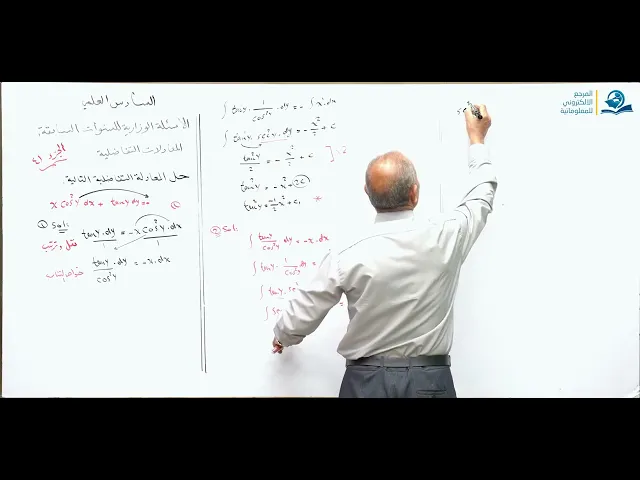 المرجع
الالكتروني
للمعلوماتية
السادس العلمي
الأسئلة الوزارية للسنوات السابقة
المعادلات التفاضلية
الجزء ٤١
حل المعادلة التفاضلية التالية.
x cos²y dx + tan y dy = 0
① Sol:
tan y . dy / 1 = -x cos²y . dx / 1
tan y . dy / cos²y = -x . dx
∫ tan y . 1/cos²y . dy = - ∫ x . dx
∫ tan y . sec²y . dy = - x²/2 + c
tan²y / 2 = - x²/2 + c ] . 2
tan²y = - x² + 2c
② Sol:
∫ tan y / cos²y dy = -x . dx
∫ tan y . 1/cos²y dy =